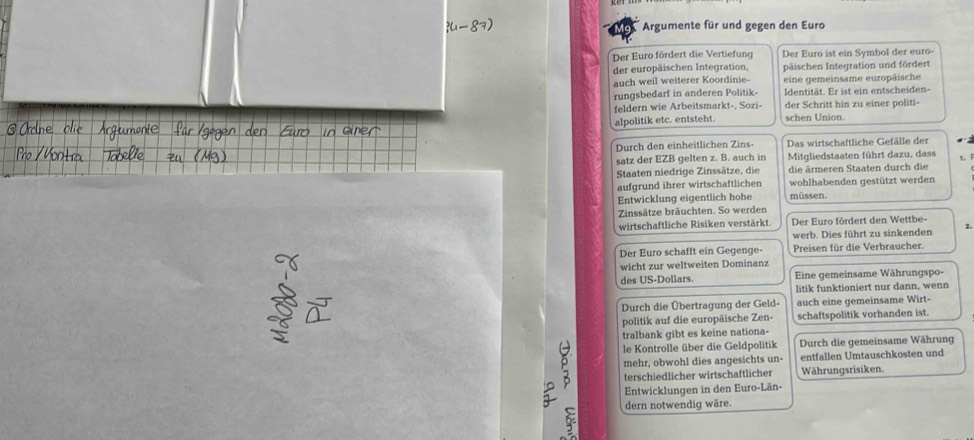 34-87)
③ Ordne die Argumente für/gegen den Euro in einer
Pro/Kontra Tabelle zu (M9)
M2020-2
P4
Diana
M9 Argumente für und gegen den Euro
Der Euro fördert die Vertiefung
der europäischen Integration,
auch weil weiterer Koordinie-
rungsbedarf in anderen Politik-
feldern wie Arbeitsmarkt-, Sozi-
alpolitik etc. entsteht.
Der Euro ist ein Symbol der euro-
päischen Integration und fördert
eine gemeinsame europäische
Identität. Er ist ein entscheiden-
der Schritt hin zu einer politi-
schen Union.
Durch den einheitlichen Zins-
satz der EZB gelten z. B. auch in
Staaten niedrige Zinssätze, die
aufgrund ihrer wirtschaftlichen
Entwicklung eigentlich hohe
Zinssätze bräuchten. So werden
wirtschaftliche Risiken verstärkt.
Das wirtschaftliche Gefälle der
Mitgliedstaaten führt dazu, dass
die ärmeren Staaten durch die
wohlhabenden gestützt werden
müssen.
Der Euro schafft ein Gegenge-
wicht zur weltweiten Dominanz
des US-Dollars.
Der Euro fördert den Wettbe-
werb. Dies führt zu sinkenden
Preisen für die Verbraucher.
Durch die Übertragung der Geld-
politik auf die europäische Zen-
tralbank gibt es keine nationa-
le Kontrolle über die Geldpolitik
mehr, obwohl dies angesichts un-
terschiedlicher wirtschaftlicher
Entwicklungen in den Euro-Län-
dern notwendig wäre.
Eine gemeinsame Währungspo-
litik funktioniert nur dann, wenn
auch eine gemeinsame Wirt-
schaftspolitik vorhanden ist.
Durch die gemeinsame Währung
entfallen Umtauschkosten und
Währungsrisiken.
1.
2.